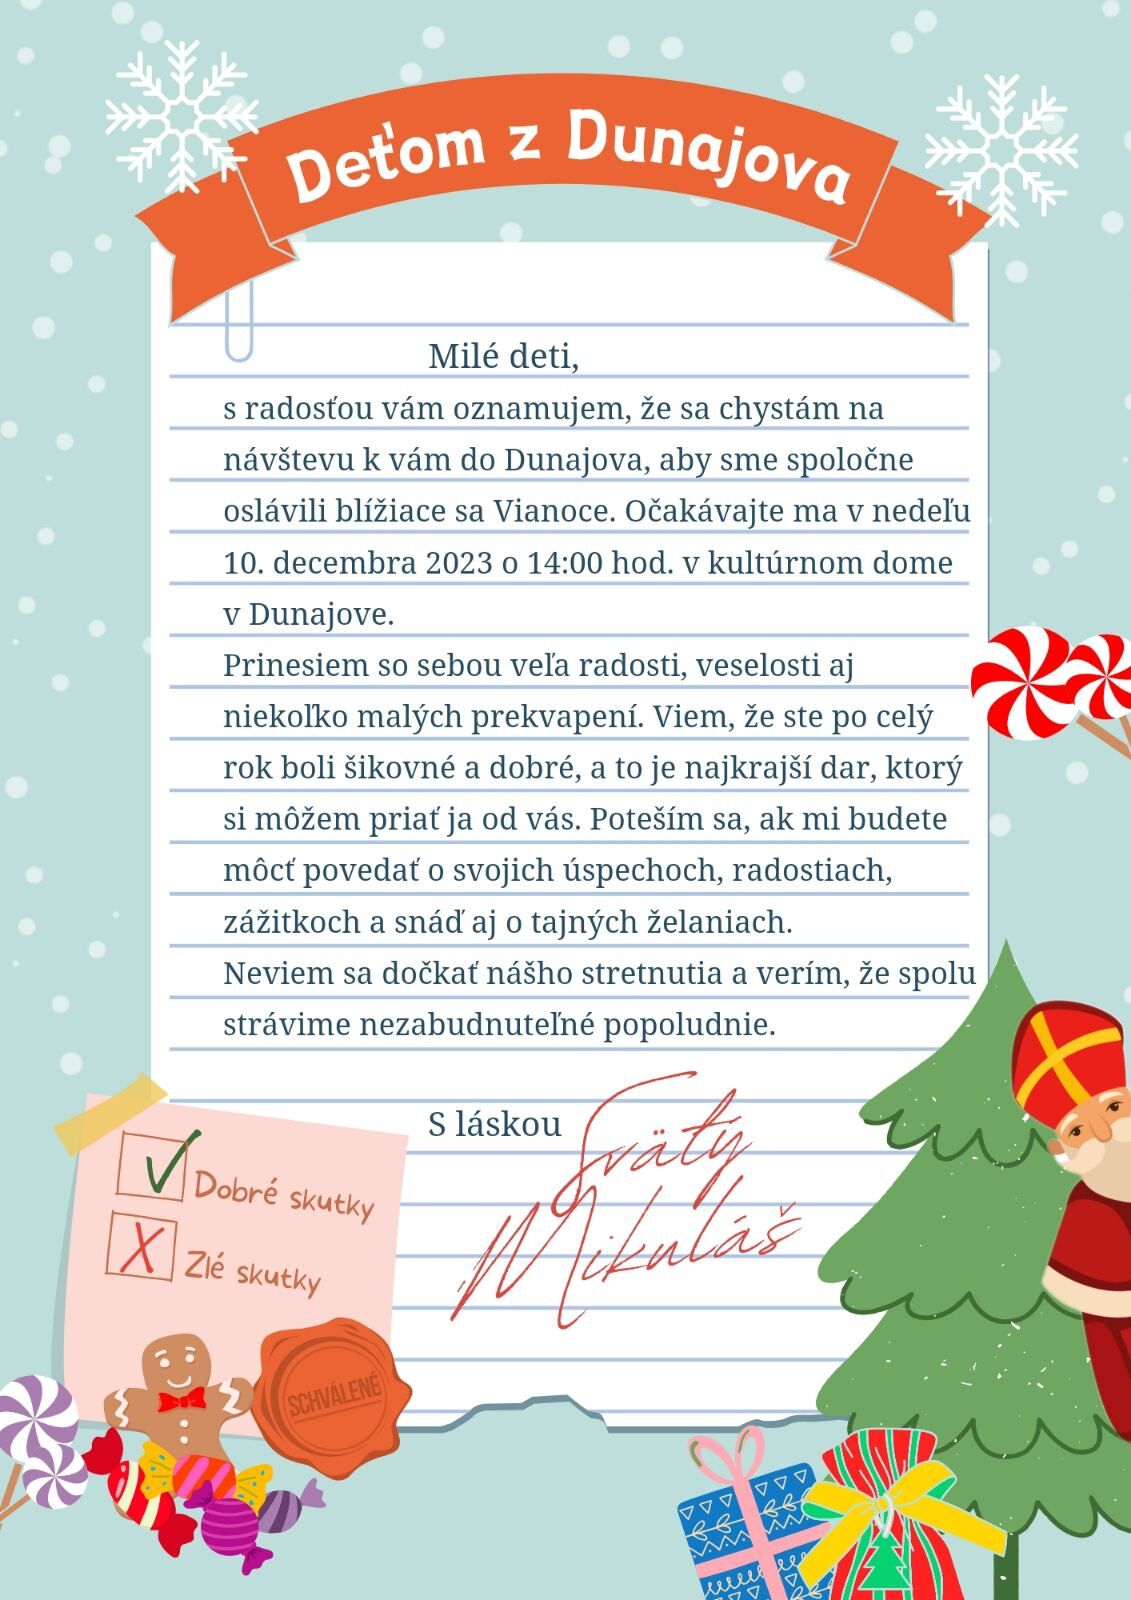 Deťom z Dunajova
Milé deti,
s radosťou vám oznamujem, že sa chystám na
návštevu k vám do Dunajova, aby sme spoločne
oslávili blížiace sa Vianoce. Očakávajte ma v nedeľu
10. decembra 2023 o 14:00 hod. v kultúrnom dome
v Dunajove.
Prinesiem so sebou veľa radosti, veselosti aj
niekoľko malých prekvapení. Viem, že ste po celý
rok boli šikovné a dobré, a to je najkrajší dar, ktorý
si môžem priať ja od vás. Poteším sa, ak mi budete
môcť povedať o svojich úspechoch, radostiach,
zážitkoch a snáď aj o tajných želaniach.
Neviem sa dočkať nášho stretnutia a verím, že spolu
strávime nezabudnuteľné popoludnie.
S láskou Svätý
Mikuláš
Dobré skutky
X Zlé skutky
SCHVÁLENÉ